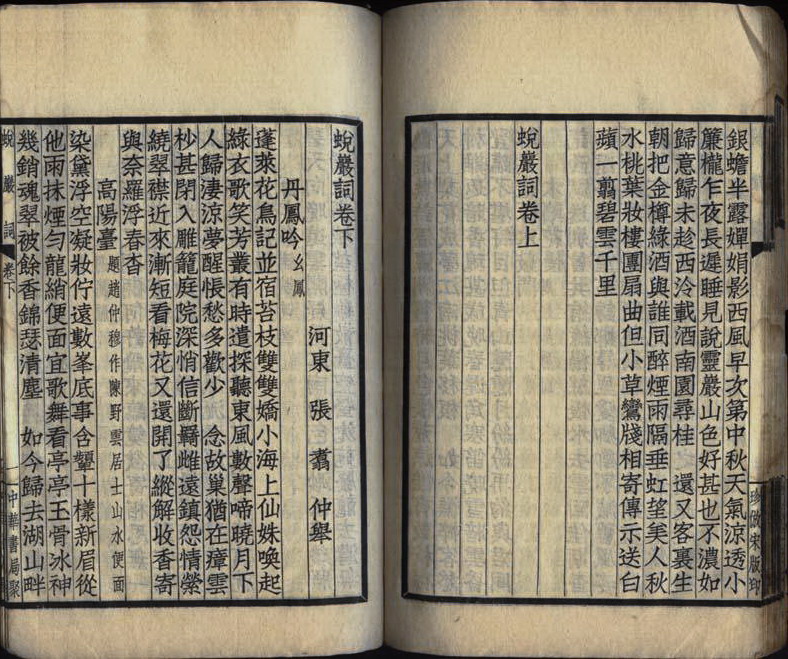 銀蟾半露嬋娟影西風早次第中秋天氣涼透小
簾櫳乍夜長遲睡見說靈巖山色好甚也不濃如
歸意歸未趁西泠載酒南園尋桂　還又客裏生
朝把金樽綠酒與誰同醉煙雨隔垂虹望美人秋
水桃葉妝樓團扇曲但小草鸞牋相寄傳示送白
蘋一翦碧雲千里
蛻巖詞卷上
珍倣宋版印
蛻巖詞卷下
河東　張　翥　仲舉
丹鳳吟幺鳳
蓬萊花鳥記並宿苔枝雙雙嬌小海上仙姝喚起
綠衣歌笑芳叢有時遣探聽東風數聲啼曉月下
人歸淒涼夢醒悵愁多歡少　念故巢猶在瘴雲
杪甚閉入雕籠庭院深悄信斷羇雌遠鎮怨情縈
繞翠襟近來漸短看梅花又還開了縱解收香寄
與奈羅浮春杳
高陽臺題趙仲穆作陳野雲居士山水便面
染黛浮空凝妝佇遠數峯底事含顰十樣新眉從
他雨抹煙勻龍綃便面宜歌舞看亭亭玉骨冰神
幾銷魂翠被餘香錦瑟清塵　如今歸去湖山畔
蛻巖詞　卷下
一　中華書局聚